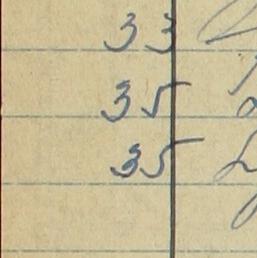 33
35
35